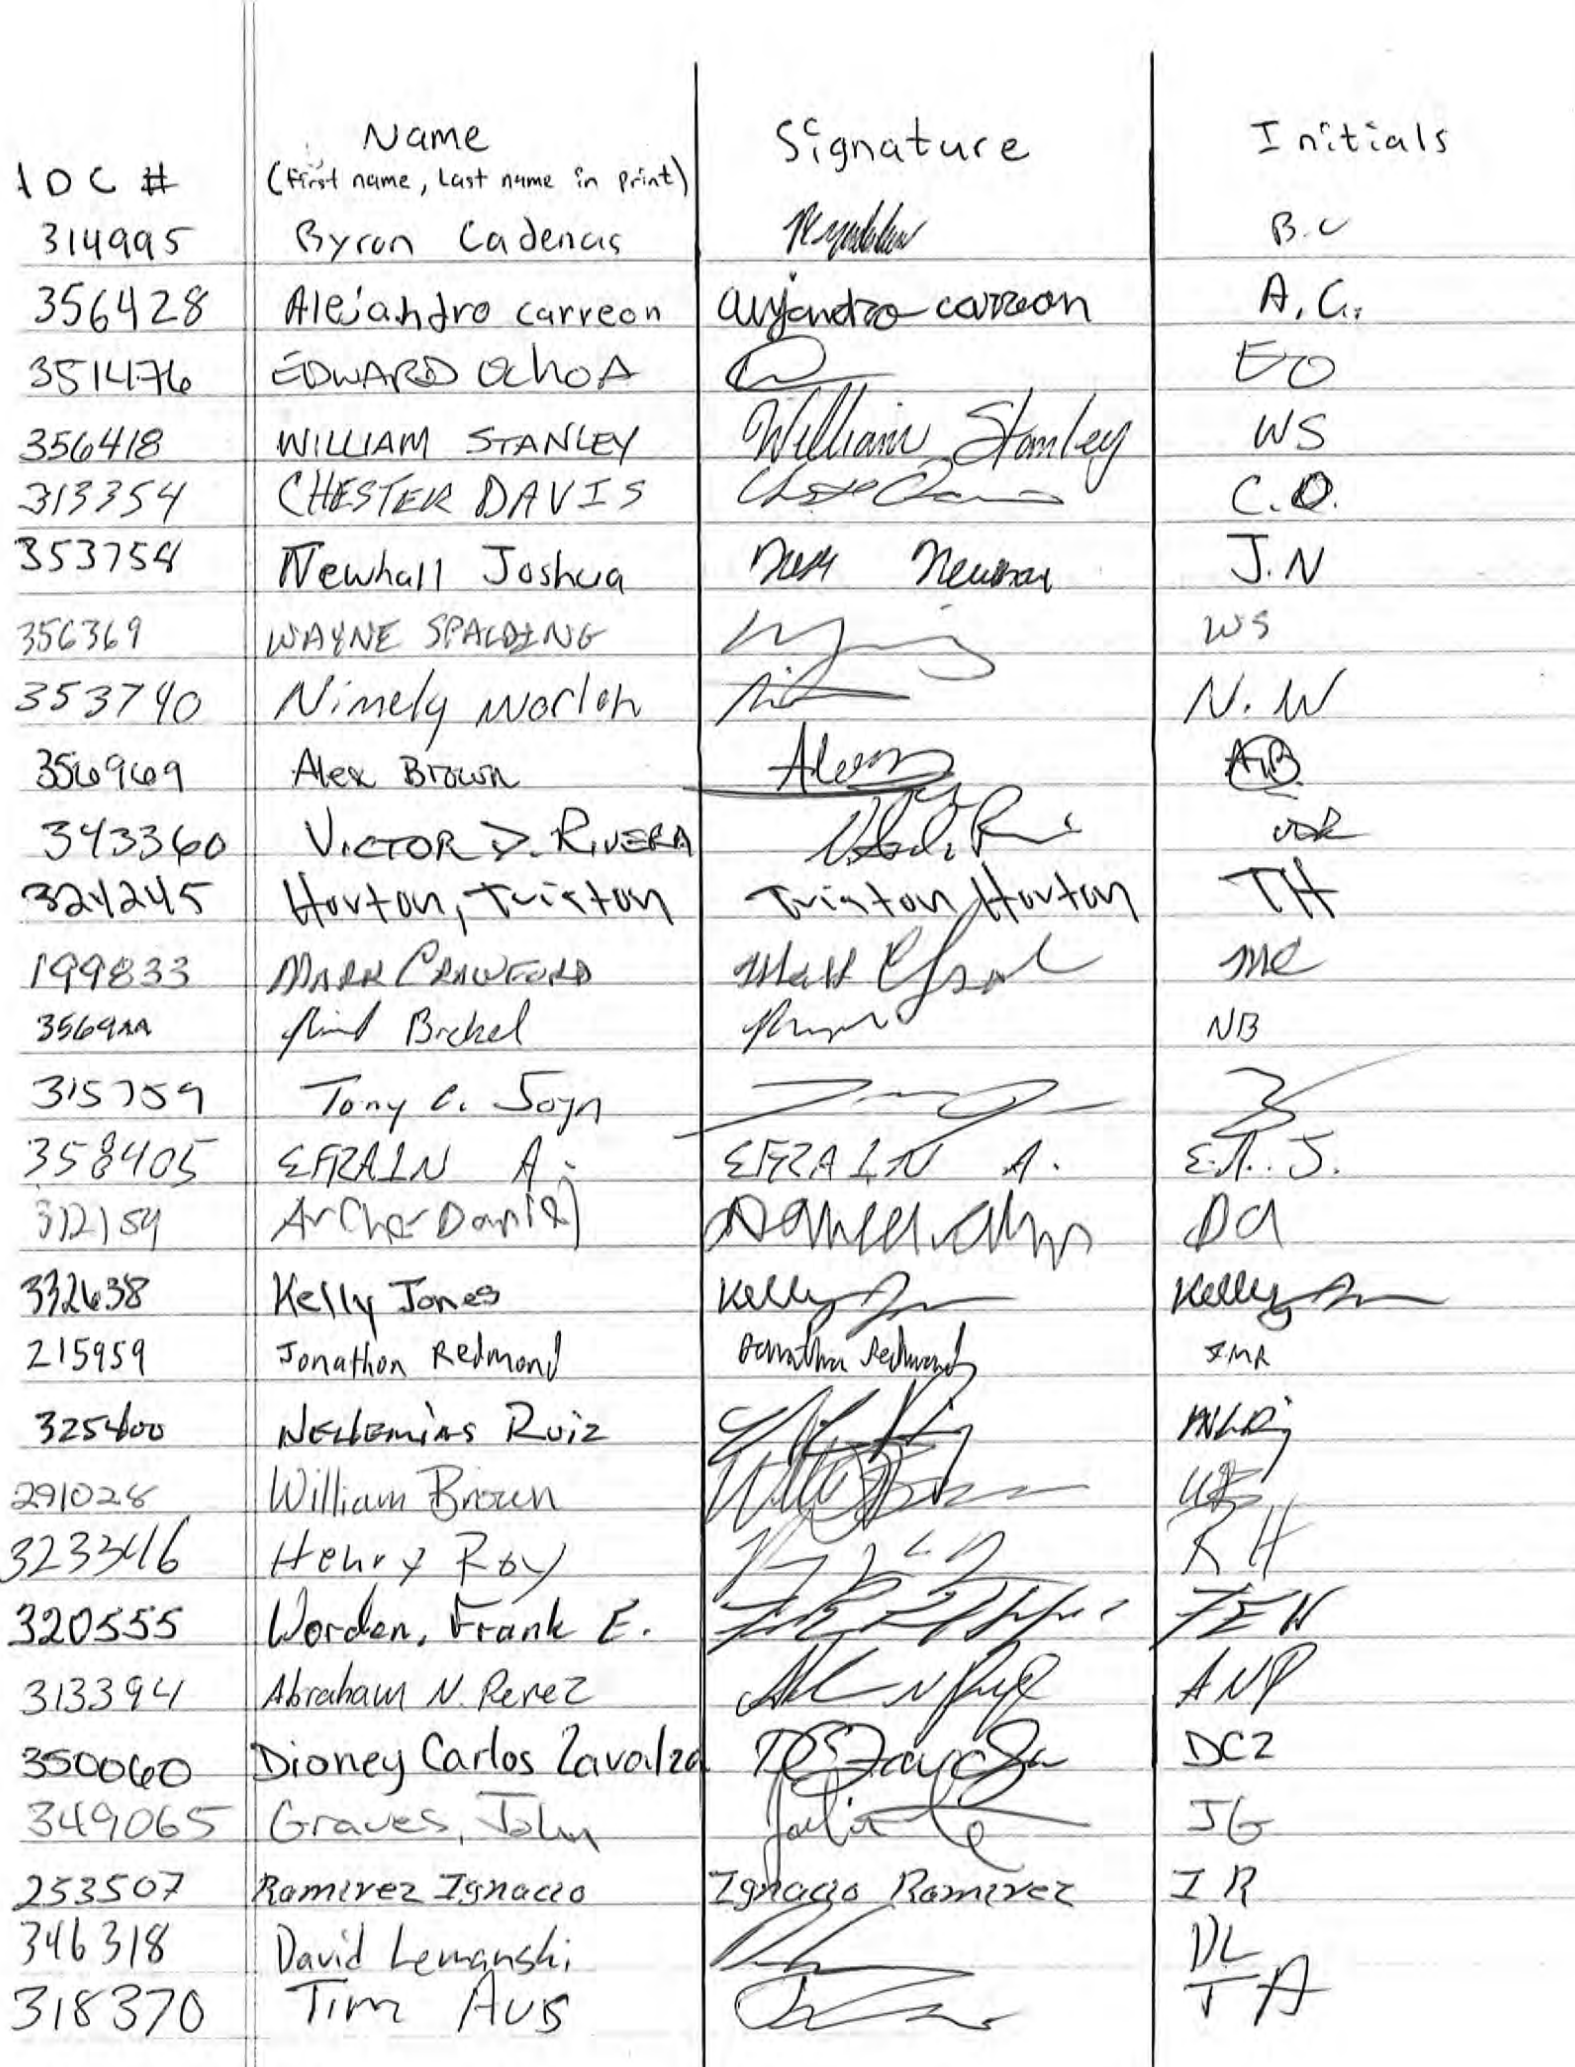 Name Signature Initials
IDC # (first name, Last name in print)
314995 Byron Cadenas B.C
356428 Alejandro carreon alejandro carreon A.C.
351476 EDWARD OchoA EO
356418 WILLIAM STANLEY William Stanley WS
313354 CHESTER DAVIS C.D.
353754 Newhall Joshua J.N
356369 WAYNE SPALDING WS
353740 Nimely Worloh N.W
356969 Alex Brown AB
343360 VICTOR D. RIVERA VDR
324245 Horton, Triston Triston Horton TH
199833 MARK CRAWFORD MC
Brekel NB
315759 Tony C.
358405 EFRAIN A. EFRAIN A. E.A. J.
312159 Archer Daniel DA
332638 Kelly Jones Kelly Kelly
215959 Jonathon Redmond Jonathon Redmond JMR
325400 Nehemias Ruiz
291028 William Brown WB
323346 Henry Roy RH
320555 Worden, Frank E. FEW
313394 Abraham N. Perez ANP
350060 Dioney Carlos Zavalza DCZ
349065 Graves, John JG
253507 Ramirez Ignacio Ignacio Ramirez IR
346318 David Lemanski DL
318370 Tim TA